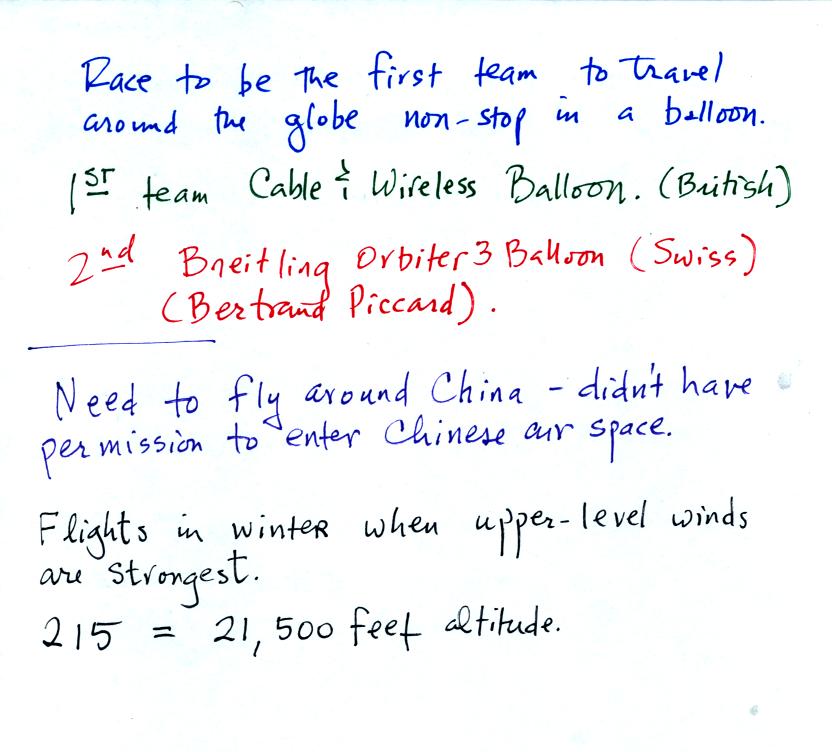 Race to be the first team to travel
around the globe non-stop in a balloon.
1st team Cable & Wireless Balloon. (British)
2nd Breitling Orbiter 3 Balloon (Swiss)
(Bertrand Piccard).
Need to fly around China - didn't have
permission to enter Chinese air space.
Flights in winter when upper-level winds
are strongest.
215 = 21,500 feet altitude.